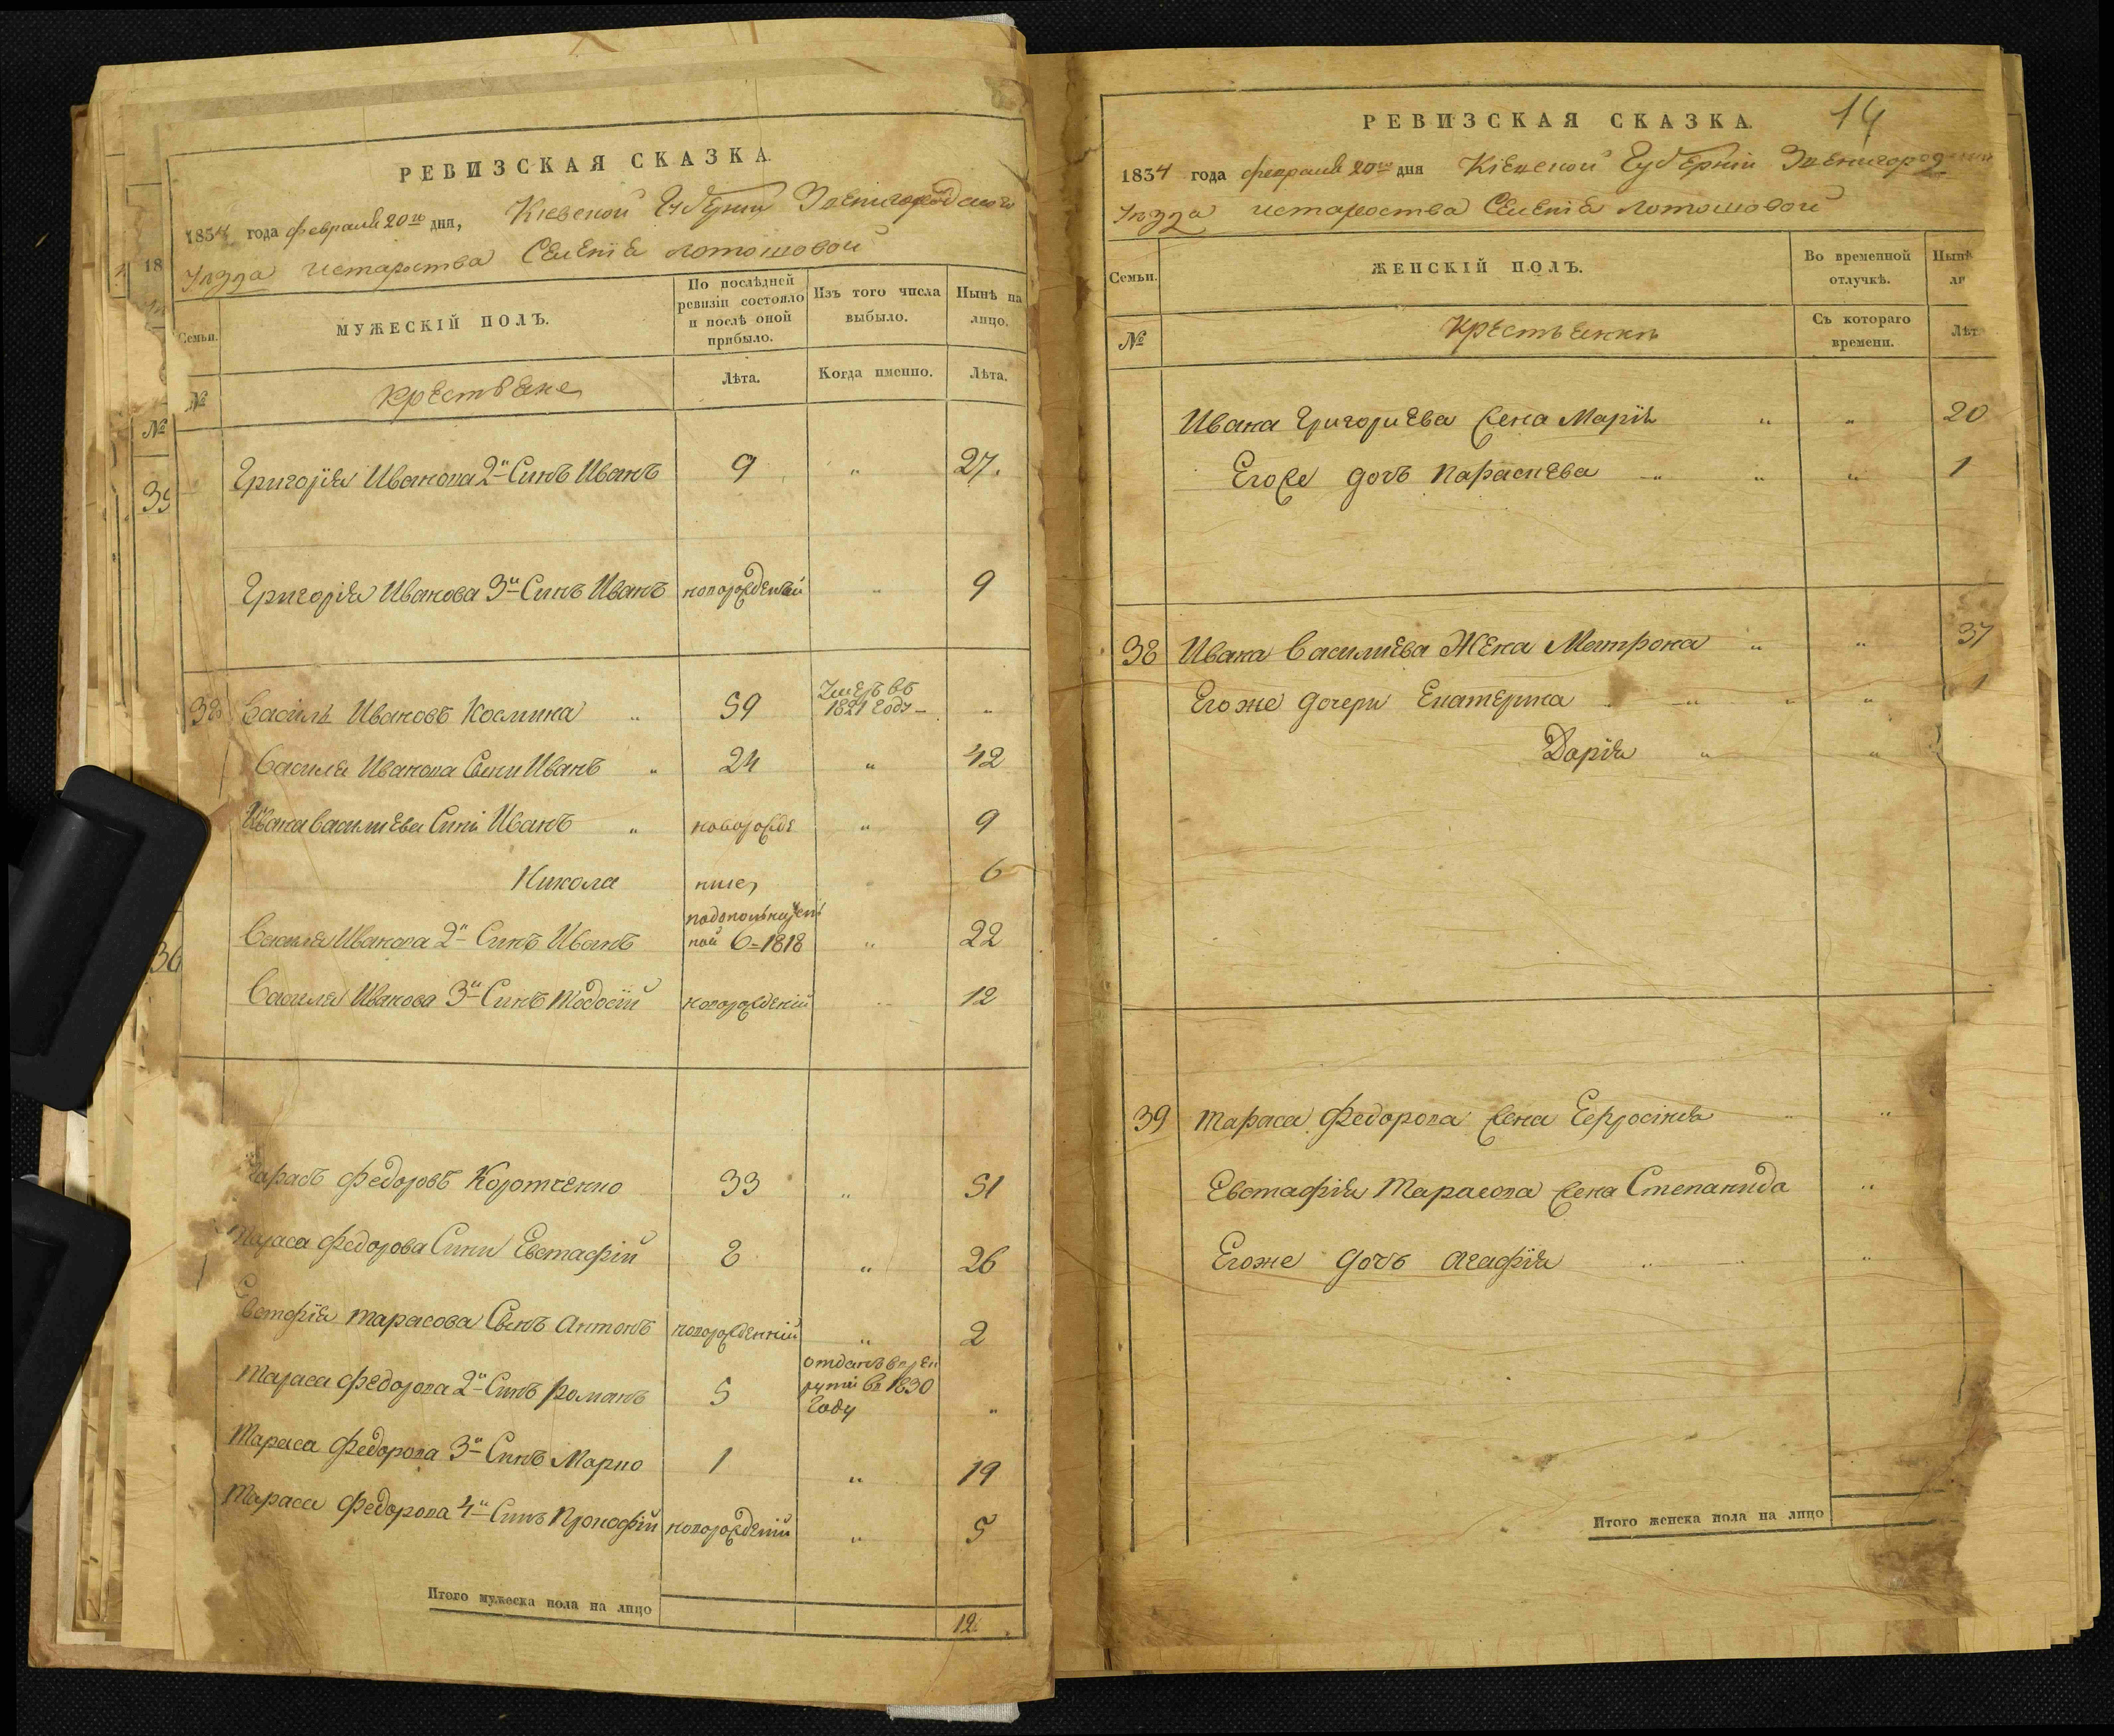 РЕВИЗСКАЯ СКАЗКА
1834 года февраля 20го дня, Киевской Губернии Звенигородского
Уезда истароства Селенiя Лотошовой
Семьи.
МУЖЕСКІЙ ПОЛЪ.
По послѣдней ревизіи состояло и послѣ оной прибыло.
Изъ того числа выбыло.
Нынѣ на лицо.
№
крестьяне
Лѣта.
Когда именно.
Лѣта.
Григорія Иванова 2й Синъ Иванъ 9 " 27.
Григорія Иванова 3й Синъ Иванъ новорожденый " 9
38 Василь Ивановъ Космина " 59 Умеръ въ 1821 Году "
Василя Иванова Сини Иванъ " 24 " 42
Ивана Василиева Сині Иванъ " новорожде " 9
Никола ние, 6
Василя Иванова 2й Синъ Иванъ 6-1818 " 22
Василя Иванова 3й Синъ Тодосій новорожденій " 12
Тарасъ Федоровъ Коротченко 33 " 51
Тараса Федорова Сини Евстафій 8 " 26
Евстафія Тарасова Синъ Антонъ новорожденній " 2
Тараса Федорова 2й Синъ Романъ 5 отданъ в рекруты въ 1830 Году "
Тараса Федорова 3й Синъ Марко 1 " 19
Тараса Федорова 4й Синъ Прокофій новорожденій " 5
Итого мужеска пола на лицо 12.
14
РЕВИЗСКАЯ СКАЗКА.
1834 года февраля 20го дня Кіевской Губерніи Звенигород
Уезда истароства Селеніа Лотошовой
Семьи.
ЖЕНСКІЙ ПОЛЪ.
Во временной отлучкѣ.
Нынѣ
№
крестьенки
Съ котораго времени.
Лѣт
Ивана Григориева жена Марія " " 20
Егоже дочъ Параскева " " " 1
38 Ивана Василиева Жена Матрона " " 37
Егоже дочери Екатерина " " "
Дарія " "
39 Тараса Федорова жена Ефросінія " "
Евстафія Тарасова жена Степанида "
Егоже дочъ Агафія " " "
Итого женска пола на лицо